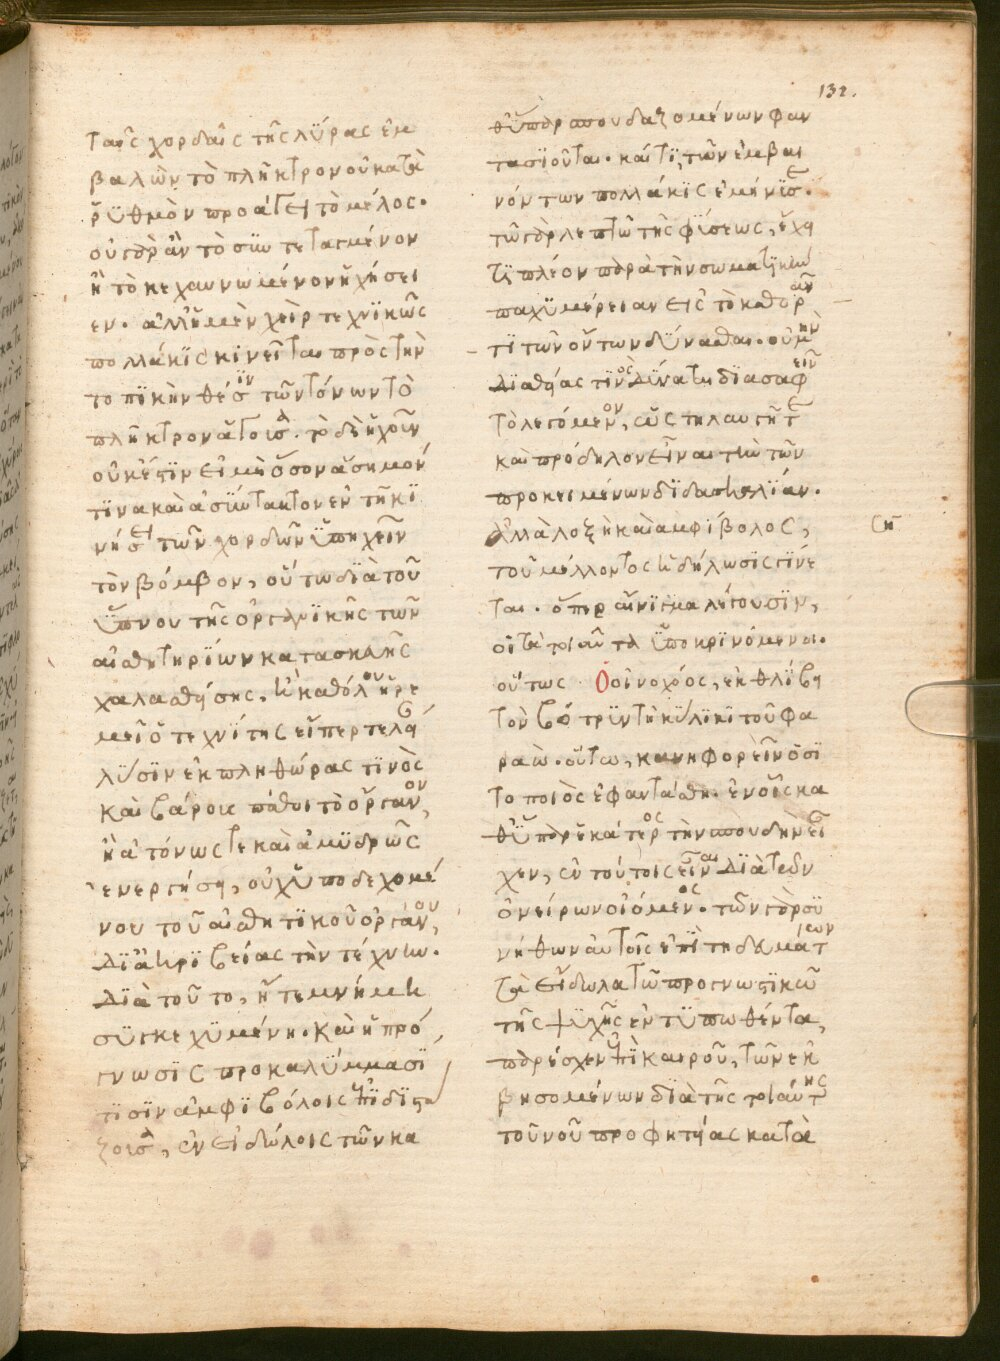 132.
ταῖς χορδαῖς τῆς λύρας ἐμ
βαλὼν τὸ πλῆκτρον οὐ κατὰ
ῥυθμὸν προάγει τὸ μέλος.
οὐ γὰρ ἂν τὸ συντεταγμένον
ἢ τὸ κεχαυνωμένον ἠχήσει
εν. ἀλλ' ἡ μὲν χεὶρ τεχνϊκῶς
πολλάκϊς κινεῖται πρὸς τὴν
τοπϊκὴν θέσϊν τῶν τόνων τὸ
πλῆκτρον ἄγουσα. τὸ δὲ ἠχοῦν
οὐκ ἔστϊν εἰ μὴ ὅσον ἄσημόν
τϊνα καὶ ἀσύντακτον ἐν τῇ κϊ
νήσει τῶν χορδῶν ὑπηχεῖν
τὸν βόμβον, οὕτω δϊὰ τοῦ
ὕπνου τῆς ὀργανϊκῆς τῶν
αἰσθητηρίων κατασκευῆς
χαλασθείσης, ἢ καθόλου ἠρε
μεῖ ὁ τεχνίτης εἴπερ τελείαν
λύσϊν ἐκ πληθώρας τϊνὸς
καὶ βάρους πάθοι τὸ ὄργανον,
ἢ ἀτόνως τε καὶ ἀμυδρῶς
ἐνεργήσει, οὐχ ὑποδεχομέ
νου τοῦ αἰσθητϊκοῦ ὀργάνου,
δϊ' ἀκρϊβείας τὴν τέχνην.
διὰ τοῦτο, ἥ τε μνήμη
συγκεχυμένη. καὶ ἡ πρό
γνωσϊς προκαλύμμασϊ
τϊσϊν ἀμφιβόλοις ἐπϊδϊστά
ζουσα, ἐν εἰδώλοις τῶν κα
θ' ὕπαρ σπουδαζομένων φαν
τασϊοῦται. καί τϊ τῶν ἐμβαι
νόντων πολλάκϊς ἐμήνυσε.
τῷ γὰρ λεπτῷ τῆς φύσεως, ἔχει
τϊ πλέον παρὰ τὴν σωματϊκὴν
παχυμέρειαν εἰς τὸ καθορᾶν
τι τῶν ὄντων δύνασθαι. οὐ μὴν
δϊ' εὐθείας τϊνὸς δύναται διασαφεῖν
τὸ λεγόμενον, ὡς τηλαυγῆ τε
καὶ πρόδηλον εἶναι τὴν τῶν
προκειμένων δϊδασκαλίαν.
ἀλλὰ λοξὴ καὶ ἀμφίβολος,
τοῦ μέλλοντος ἡ δήλωσϊς γίνε
ται. ὅπερ αἴνιγμα λέγουσϊν,
οἱ τὰ τοιαῦτα ὑποκρϊνόμενοι.
οὕτως ὁ οἰνοχόος, ἐκθλίβει
τὸν βότρυν τῇ κύλικι τοῦ φα
ραώ. οὕτω, κανηφορεῖν ὁ σϊ
τοποιὸς ἐφαντάσθη. ἐν οἷς κα
θ' ὕπαρ ἑκάτερος τὴν σπουδὴν εἶ
χεν, ἐν τούτοις εἶναι δϊὰ τῶν
ὀνείρων οἰόμενος. τῶν γὰρ συ
νήθων αὐτοῖς ἐπιτηδευμάτων
τὰ εἴδωλα τῷ προγνωστϊκῷ
τῆς ψυχῆς ἐντυπωθέντα,
παρέσχεν ἐπὶ καιροῦ, τῶν ἐκ
βησομένων διὰ τῆς τοιαύτης
τοῦ νοῦ προφητείας κατὰ
ση